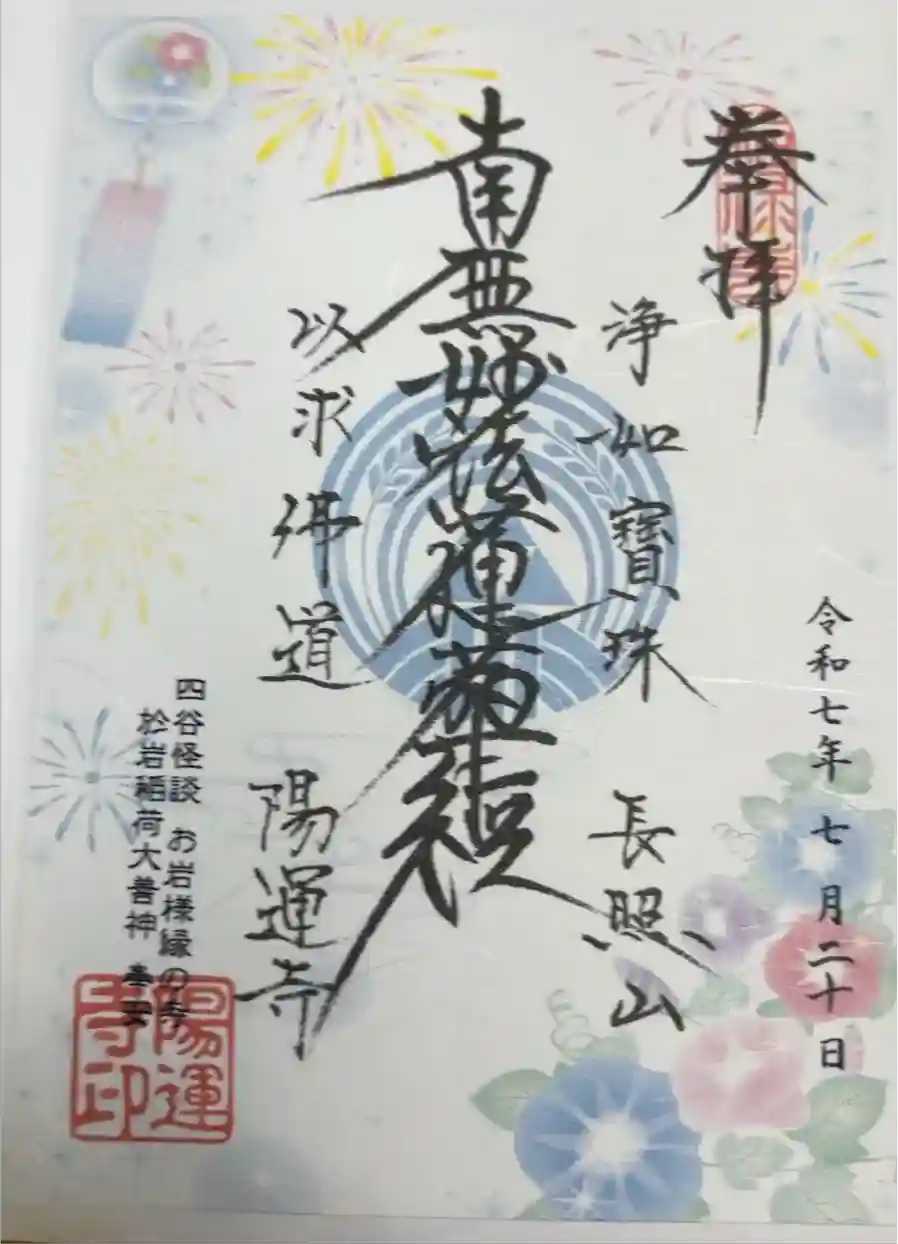 奉拝
令和七年 七月二十日
浄如寶珠 長照山
南無妙法蓮華経
以求佛道 陽運寺
四谷怪談 お岩様縁の寺
於岩稲荷大善神 奉安
陽運
寺印